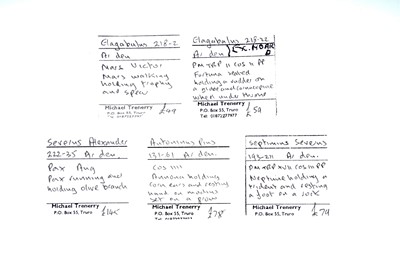 Elagabalus 218-2
AR den
Mars Victor
Mars walking
holding trophy
and spear
Michael Trenerry
P.O. Box 55, Truro
£49
Elagabalus 218-22
AR den EX. HOARD
PM TRP II COS II PP
Fortuna seated
holding a rudder on
a globe and cornucopiae
wheel under throne
Michael Trenerry
P.O. Box 55, Truro
Tel: 01872277977
£59
Severus Alexander
222-35 AR den.
Pax Aug
Pax running and
holding olive branch
Michael Trenerry
P.O. Box 55, Truro
Antoninus Pius
AR den.
COS IIII
Annona holding
corn ears and resting
hand on modius
set on a prow
Michael Trenerry
P.O. Box 55, Truro
£78
Septimius Severus
193-211 AR den.
PM TRP XVII COS III PP
Neptune holding a
trident and resting
a foot on a rock
Michael Trenerry
P.O. Box 55, Truro
£79